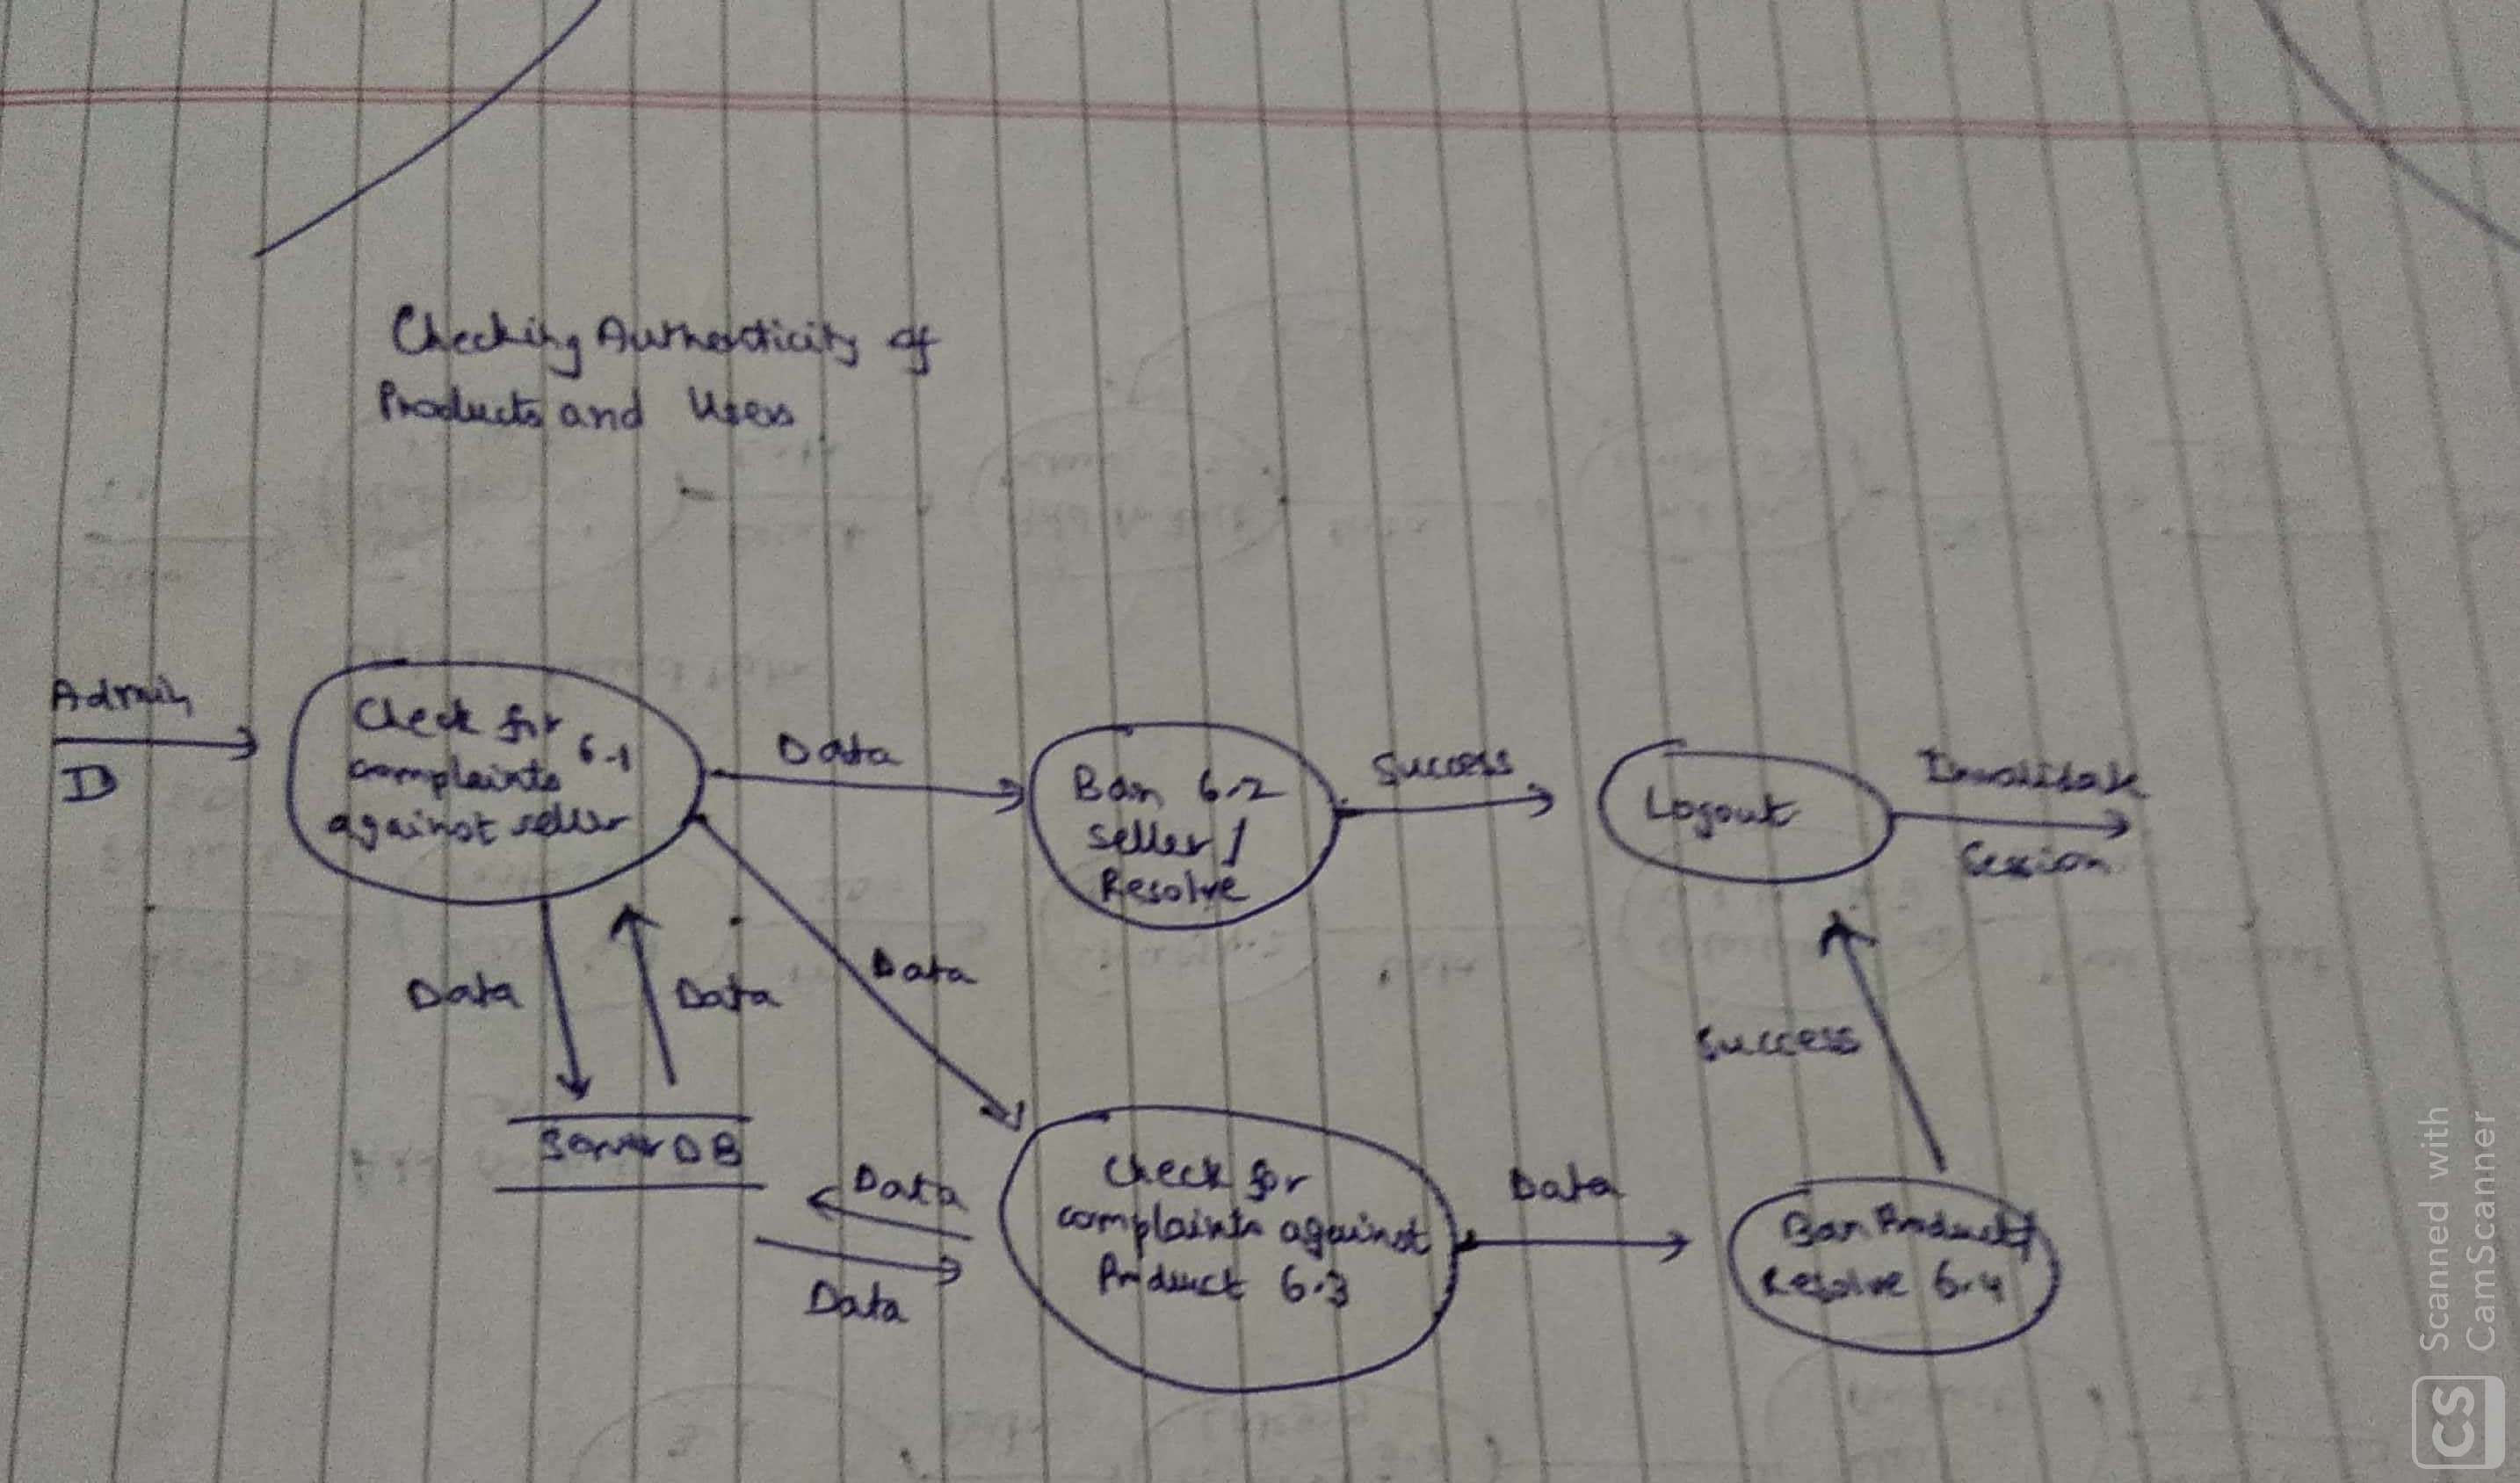 Checking Authenticity of
Products and Users
Admin
ID
Check for
complaints 6.1
against seller
Data
Ban 6.2
seller /
Resolve
Success
Logout
Invalidate
Session
Data
Data
Data
Success
Server DB
Data
Data
Check for
complaints against
Product 6.3
Data
Ban Product/
Resolve 6.4
Scanned with
CamScanner
CS